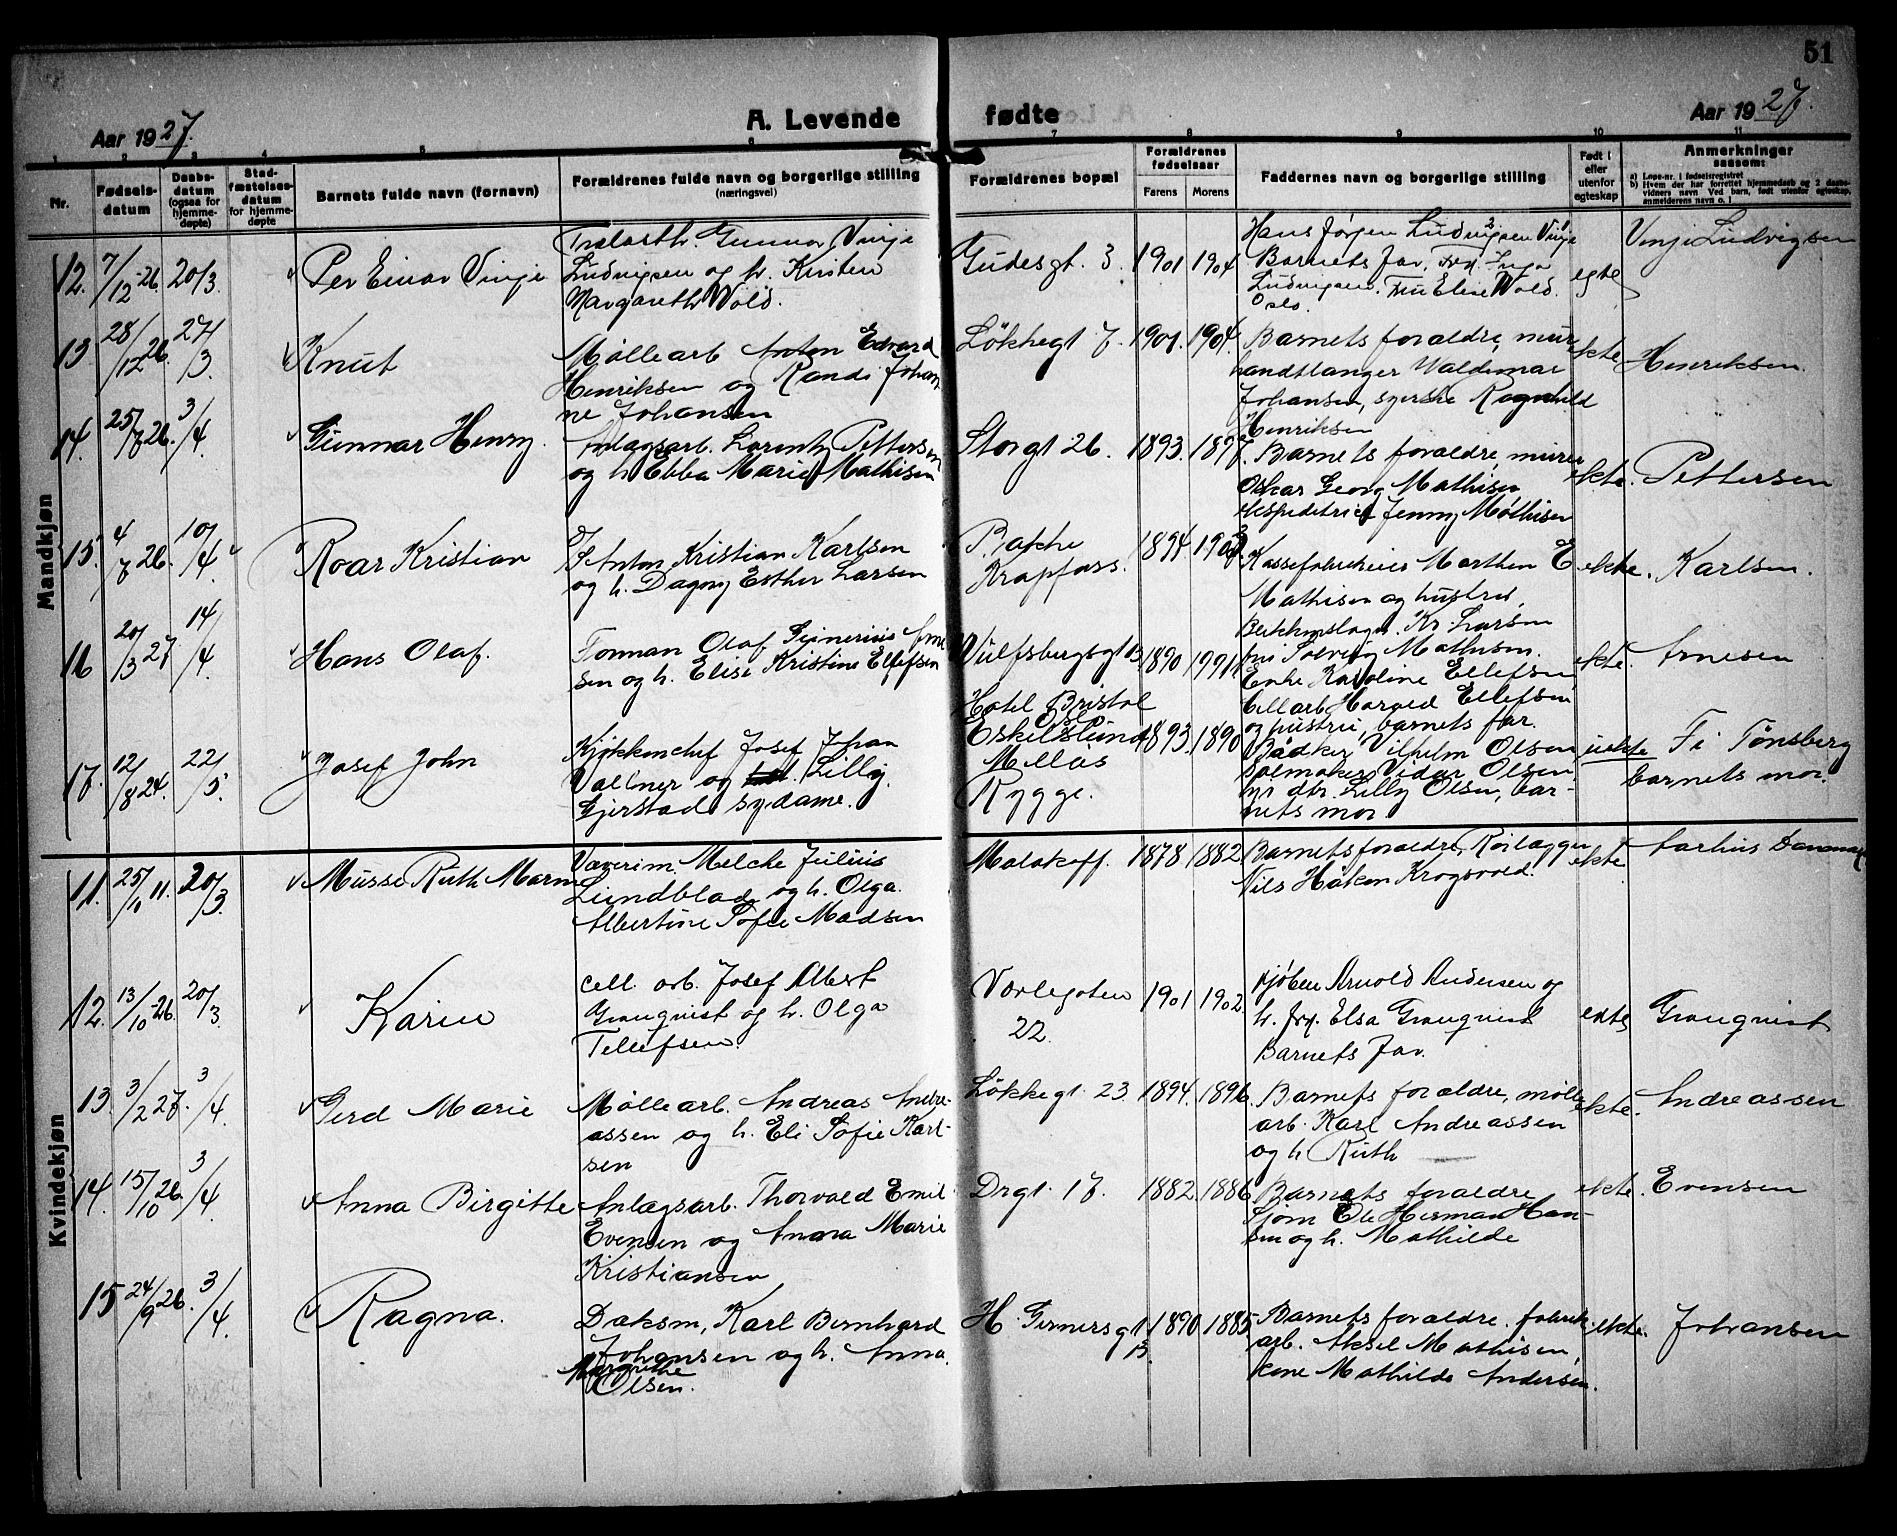 51
Aar 1927.
A. Levende fødte
Aar 1927.
1 2 3 4 5 6 7 8 9 10 11
Nr.
Fødsels-
datum
Daabs-
datum
(ogsaa for
hjemme-
døpte)
Stad-
fæstelses-
datum
for hjemme-
døpte
Barnets fulde navn (fornavn)
Forældrenes fulde navn og borgerlige stilling
(næringsvei)
Forældrenes bopæl
Forældrenes
fødselsaar
Farens Morens
Faddernes navn og borgerlige stilling
Født i
eller
utenfor
egteskap
Anmerkninger
saasom:
a) Løpe-nr. i fødselsregistret
b) Hvem der har forrettet hjemmedaab og 2 daabs-
vidners navn. Ved barn, født utenfor egteskap,
anmelderens navn o. l.
Mandkjøn
12. 7/12-26. 20/3. Per Einar Vinje
Gunnar Vinje
Ludvigsen og h. Kirsten
Margarethe Wold.
Gudesgt. 3. 1901 1904
Hans Jørgen Ludvigsen Vinje
Barnets Far, Frk. Inga
Ludvigsen. Fru Elise Wold.
Oslo
egte
Vinje Ludvigsen
13 28/12 26. 27/3 Knut
Møllearb Anton Edvard
Henriksen og Randi Johan-
ne Johansen
Løkkegt 7. 1901. 1904.
Barnets foraldre, mur
handtlanger Waldemar
Johansen, syerske Ragnhild
Henriksen
ekte
Henriksen.
14. 25/7 26. 3/4. Gunnar Henry.
Anlagsarb. Larentz Pettersen
og h. Ebba Marie Mathisen
Storgt 26. 1893. 1897.
Barnets foraldre, murer
Oskar Georg Mathisen
ekspeditrice Jenny Mathisen
ekte.
Pettersen
15. 4/7 26. 10/4. Roar Kristian
Anton Kristian Karlsen
og h. Dagny Esther Larsen
Bakke
Krapfoss. 1894.
Kassefabrikeier Marthin E.
Mathisen og hustru,
Blikkenslager Kr. Larsen
fru Solveig Mathisen.
ekte.
Karlsen.
16 20/3 27 14/4. Hans Olaf.
Forman Olaf Arne
sen og h. Elise Kristine Ellefsen
Wulfsbergsgt 13. 1890 1991.
Enke Karoline Ellefsen,
Cellarb. Harald Ellefsen
og hustru, barnets far.
ekte.
Arnesen
17. 12/8 24. 22/5. Josef John
Kjøkkenchef Josef Johan
Vallner og Lilly
Gjerstad sydame.
Hotel Bristol
Oslo
Eskilslund
Mellös
Rygge. 1893. 1890
Bådker Vilhelm Olsen,
sølmaker Vidar Olsen,
Lilly Olsen, bar-
nets mor
uekte
Fi Tønsberg
barnets mor.
Kvindekjøn
11. 25/11. 20/3. Musse Ruth Marni
Væverim. Melche Julius
Lundblad og h. Olga.
Albertine Sofie Madsen
Malakoff. 1878 1882
Barnets foraldre, Rörlægger
Nils Håken Krogsvold.
ekte.
Aarhus Danmark
12. 13/10-26. 20/3. Karin
cell. arb. Josef Albert
Granqvist og h. Olga
Tellefsen.
Varlegaten
22. 1901 1902.
kjøbm Arnold Andersen og
h. frk. Elsa Granqvist
Barnets Far.
ekte
Granqvist
13. 3/2 27. 3/4. Gerd Marie
Møllearb. Andreas Andre-
assen og h. Eli Sofie Karl-
sen
Løkkegt 23. 1894. 1896.
Barnets foraldre, mølle
arb. Karl Andreassen
og h Ruth
ekte.
Andreassen
14. 15/10 26. 3/4. Anna Birgitte
Anlægsarb. Thorvald Emil
Evensen og Anna Marie
Kristiansen
Drgt. 17. 1882. 1886
Barnets foraldre
Sjøm Ole Herman Han-
sen og h. Mathilde
ekte.
Evensen
15 24/9 26. 3/4. Ragna.
Daksm, Karl Bernhard
Johansen og h. Anna.
Margrethe
Olsen.
H. Gernersgt
13. 1890 1885
Barnets foraldre. fabrik
arb. Aksel Mathisen,
kone Mathilde Andersen.
ekte.
Johansen